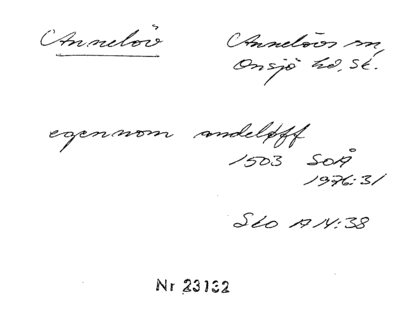 Annelöv Annelövs sn,
Onsjö hd, Sk.
egennom andeløff
1503 SOÅ
1976:31
SLO AN:38
Nr 23132